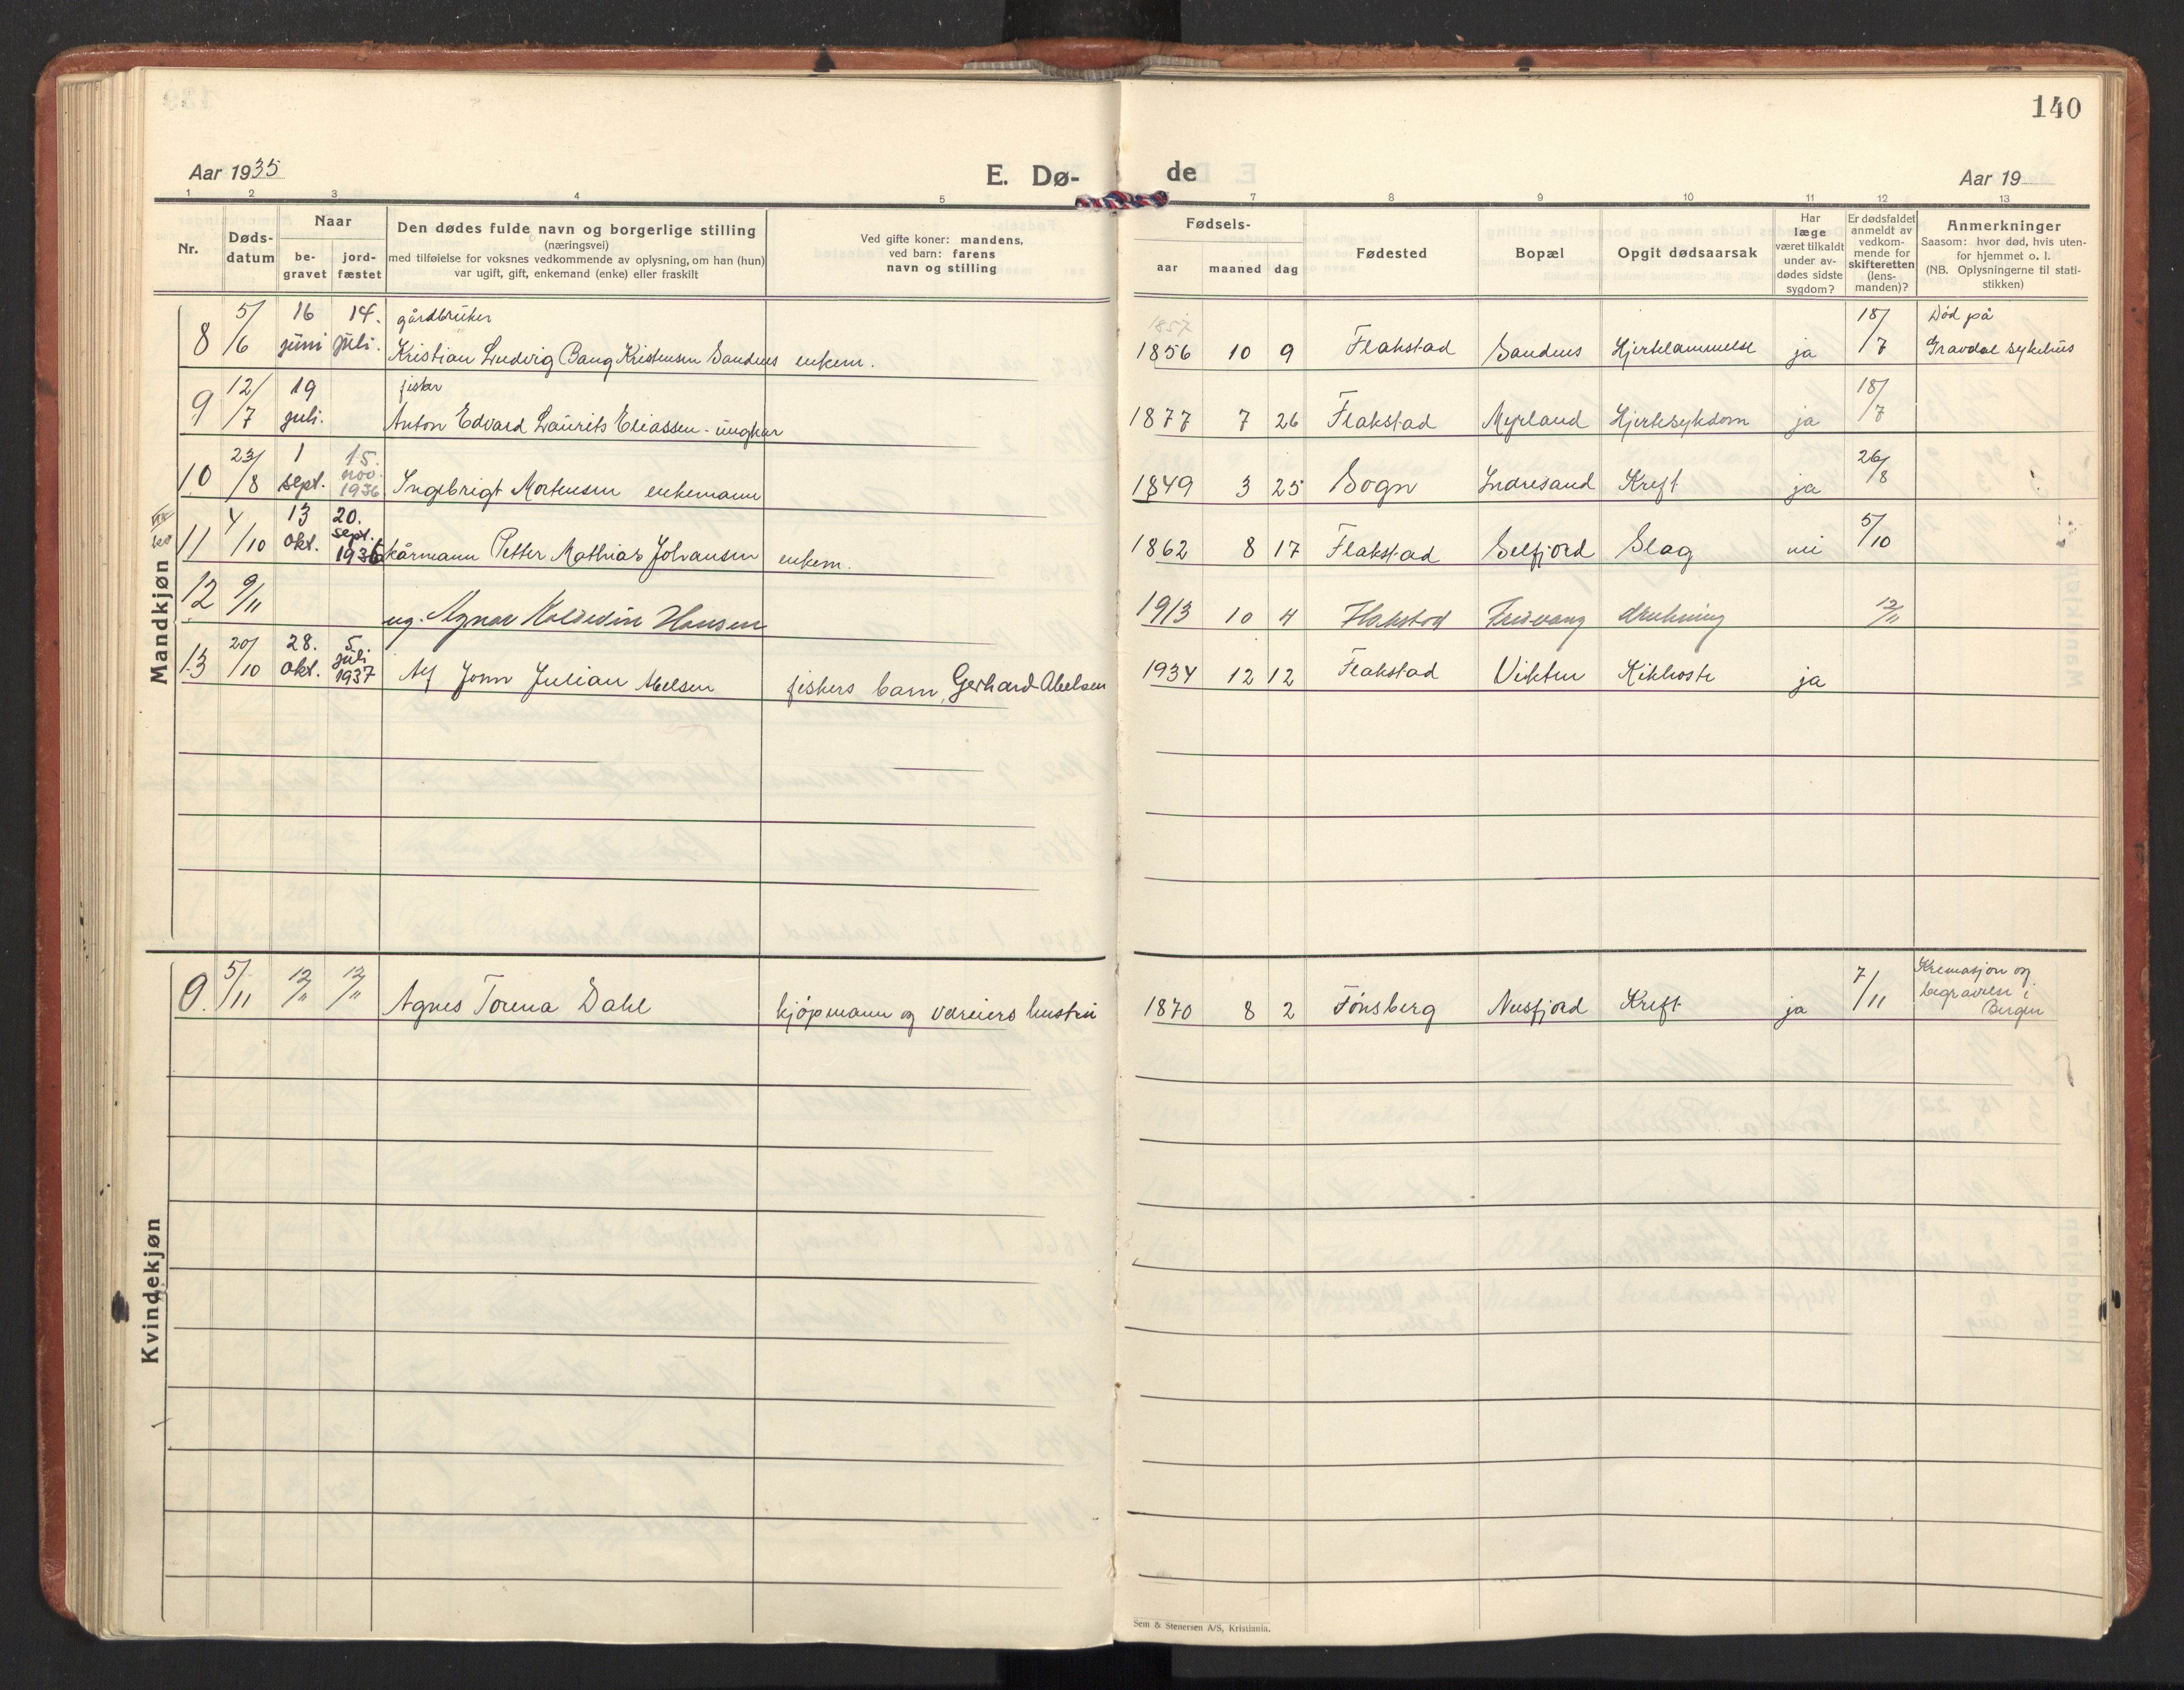 140
Aar 1935
E. Dø-
de
Aar 19
1 2 3 4 5 7 8 9 10 11 12 13
Nr.
Døds-
datum
Naar
be-
gravet
jord-
fæstet
Den dødes fulde navn og borgerlige stilling
(næringsvei)
med tilføielse for voksnes vedkommende av oplysning, om han (hun)
var ugift, gift, enkemand (enke) eller fraskilt
Ved gifte koner: mandens,
ved barn: farens
navn og stilling
Fødsels-
aar maaned dag
Fødested
Bopæl
Opgit dødsaarsak
Har
læge
været tilkaldt
under av-
dødes sidste
sygdom?
Er dødsfaldet
anmeldt av
vedkom-
mende for
skifteretten
(lens-
manden)?
Anmerkninger
Saasom: hvor død, hvis uten-
for hjemmet o. l.
(NB. Oplysningerne til stati-
stikken)
Mandkjøn
8 5/6 16 juni 14. juli. gårdbruker
Kristian Ludvig Bang Kristensen Sandnes enkem. 1857
1856 10 9 Flakstad Sandnes Hjertelammelse ja 18/7 Død på
Gravdal sykehus
9 12/7 19 juli. fisker
Anton Edvard Laurits Eliassen - ungkar 1877 7 26 Flakstad Myrland Hjertesykdom ja 18/7
10 23/8 1 sept. 15. nov. 1936 Ingebrigt Mortensen enkemann 1849 3 25 Sogn Indresand Kreft ja 26/8
11 4/10 13 okt. 20. sept. 1936 kårmann Petter Mathias Johansen enkem. 1862 8 17 Flakstad Selfjord Slag nei 5/10
12 9/11 ug. Agnar Hansen 1913 10 4 Flakstad Fredvang drukning 12/11
13 20/10 28. okt. 5. juli 1937 Alf Jonn Julian Abelsen fiskers barn, Gerhard Abelsen 1934 12 12 Flakstad Vikten Kikhoste ja
Kvindekjøn
9. 5/11 12/11 12/11 Agnes Torena Dahl kjøpmann og væreiers hustru 1870 8 2 Tønsberg Nusfjord Kreft ja 7/11 Kremasjon og
begravelse i
Bergen
Sem & Stenersen A/S, Kristiania.